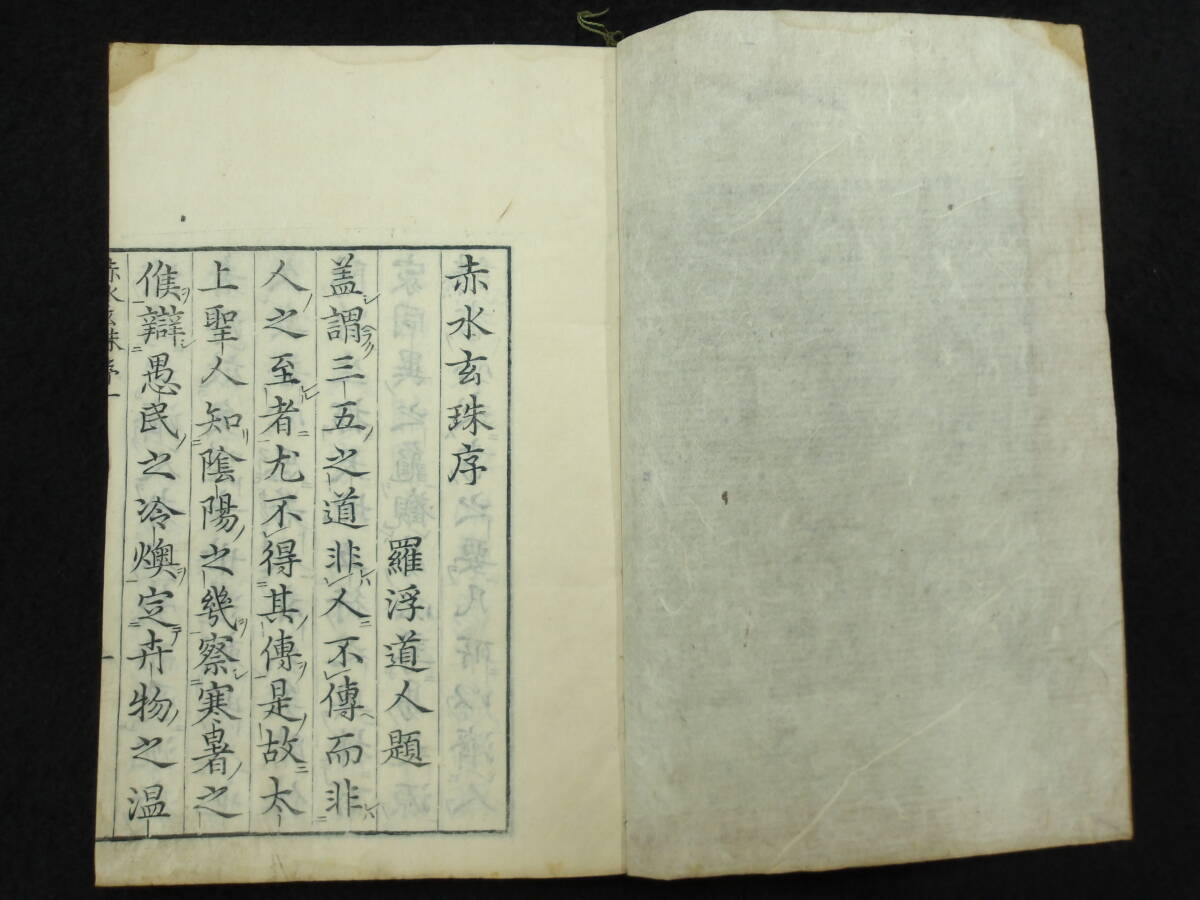 赤水玄珠序
羅浮道人題
盖謂三五之道非人不傳而非
人之至者尤不得其傳是故太
上聖人知陰陽之幾察寒暑之
候辯愚民之冷燠定卉物之温
赤水玄珠序一